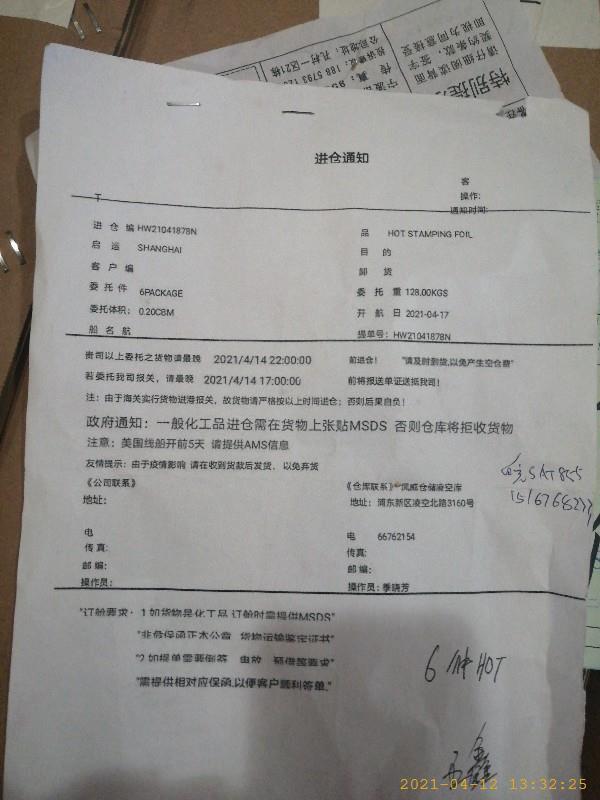 特别提
请仔细阅读背面
契约条款，签字
即视为同意接受
公司地址：孔村一区21栋
进仓通知
客
操作：
通知时间：
进 仓 编 HW21041878N 品 HOT STAMPING FOIL
启 运 SHANGHAI 目 的
客 户 编 卸 货
委 托 件 6PACKAGE 委 托 重 128.00KGS
委托体积： 0.20CBM 开 航 日 2021-04-17
船 名 航 提单号：HW21041878N
贵司以上委托之货物请最晚 2021/4/14 22:00:00 前进仓！ "请及时到货,以免产生空仓费"
若委托我司报关，请最晚 2021/4/14 17:00:00 前将报送单证送抵我司！
注：由于海关实行货物进港报关，故货物请严格按以上时间进仓；否则后果自负！
政府通知：一般化工品进仓需在货物上张贴MSDS 否则仓库将拒收货物
注意：美国线船开前5天 请提供AMS信息
友情提示：由于疫情影响 请在收到货款后发货，以免弃货
《公司联系》 《仓库联系》凤威仓储凌空库
地址： 地址：浦东新区凌空北路3160号
电 电 66762154
传真： 传真：
邮 编： 邮 编：
操作员： 操作员：季晓芳
"订舱要求：1.如货物是化工品,订舱时需提供MSDS"
"非危保函正本公章，货物运输鉴定证书"
"2.如提单需要倒签，电放，预借等要求"
"需提供相对应保函,以便客户顺利签单."
6件HOT
2021-04-12 13:32:25